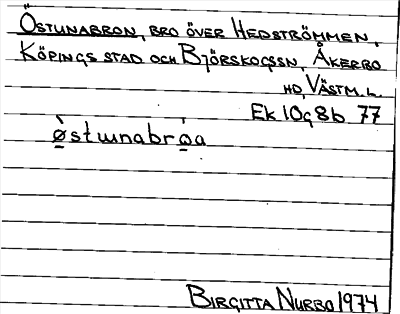 Östunabron, bro över Hedströmmen,
Köpings stad och Björskogssn, Åkerbo
hd, Västm. l.
Ek 10g8b 77
ø̱̀stɯnabrø̱̀a
Birgitta Nurbo 1974